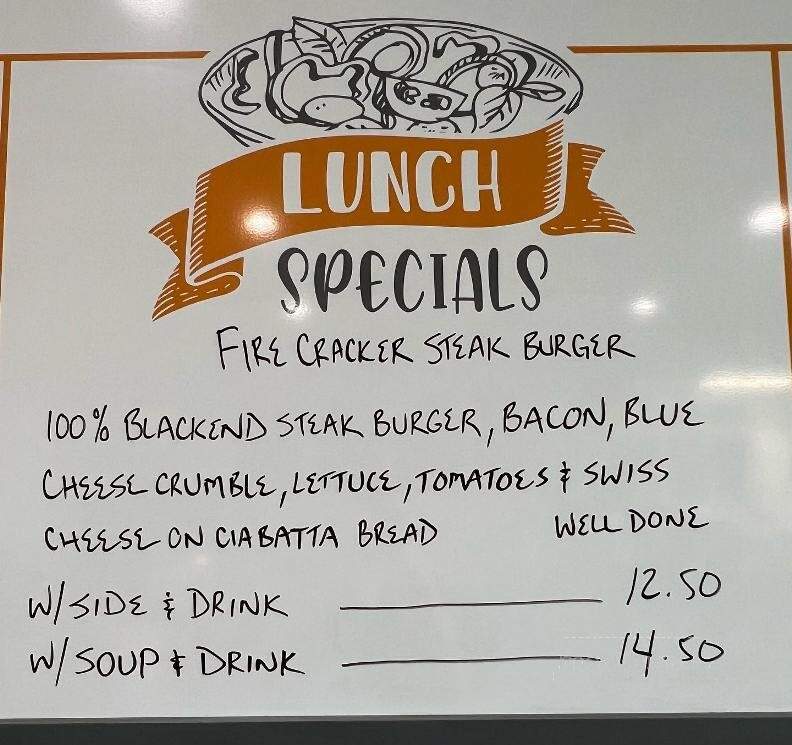 LUNCH
SPECIALS
FIRE CRACKER STEAK BURGER
100% BLACKEND STEAK BURGER, BACON, BLUE
CHEESE CRUMBLE, LETTUCE, TOMATOES & SWISS
CHEESE ON CIABATTA BREAD WELL DONE
W/SIDE & DRINK 12.50
W/SOUP & DRINK 14.50